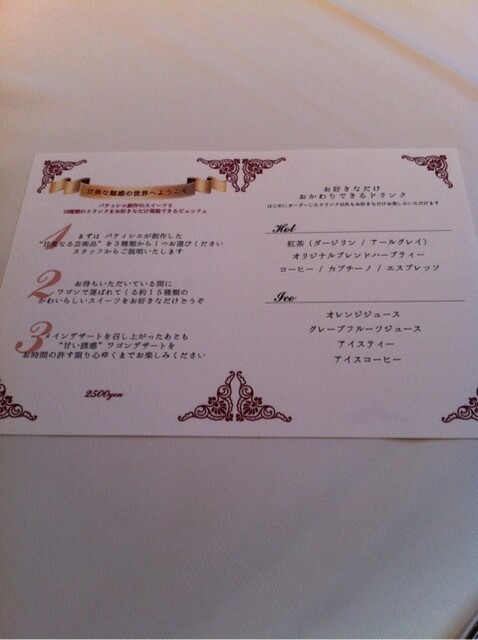 甘美な魅惑の世界へようこそ
パティシエ創作のスイーツと
10種類のドリンクをお好きなだけ堪能できるビュッフェ
1
まずは パティシエが創作した
"甘美なる芸術品" を3種類から1つお選びください
スタッフからご説明いたします
2
お待ちいただいている間に
ワゴンで運ばれてくる約15種類の
かわいらしいスイーツをお好きなだけどうぞ
3
メインデザートを召し上がったあとも
"甘い誘惑" ワゴンデザートを
お時間の許す限り心ゆくまでお楽しみください
2500yen
お好きなだけ
おかわりできるドリンク
はじめにオーダーしたドリンク以外もお好きなだけお楽しみいただけます
Hot
紅茶 (ダージリン / アールグレイ)
オリジナルブレンドハーブティー
コーヒー / カプチーノ / エスプレッソ
Ice
オレンジジュース
グレープフルーツジュース
アイスティー
アイスコーヒー